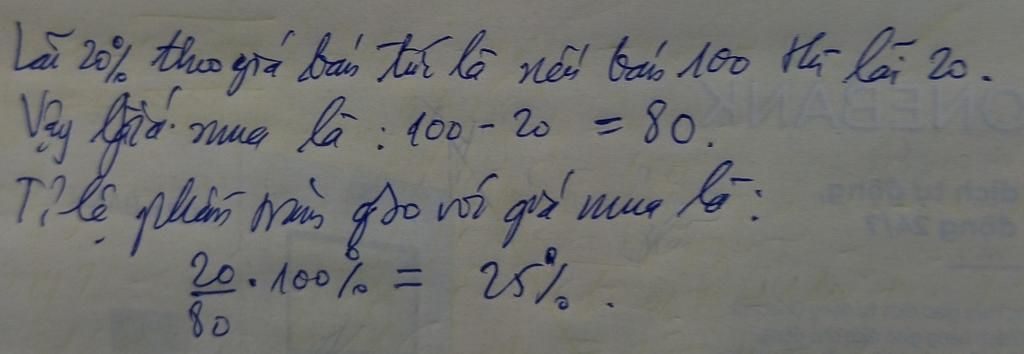 Lãi 20% theo giá bán tức là nếu bán 100 thì lãi 20.
Vậy giá mua là : 100 - 20 = 80.
Tỉ lệ phần trăm so với giá mua là :
20/80 . 100% = 25% .
ONEBANK
dịch tự động,
động 24/7